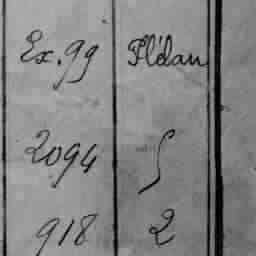 Ex. 99 Flédau
2094 S
918 2